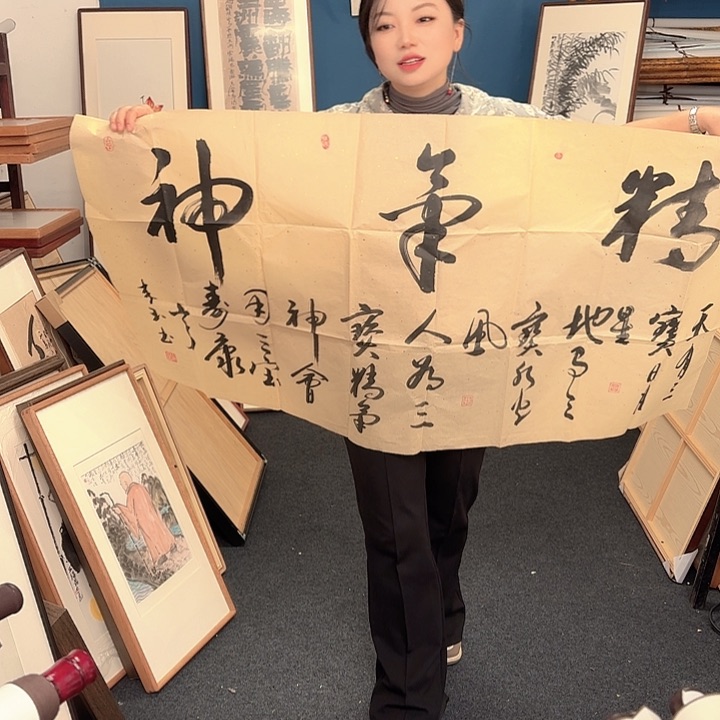 精氣神
天有三
寶日月
星
地有三
寶水火
風
人有三
寶精氣
神會
用三宝
壽康